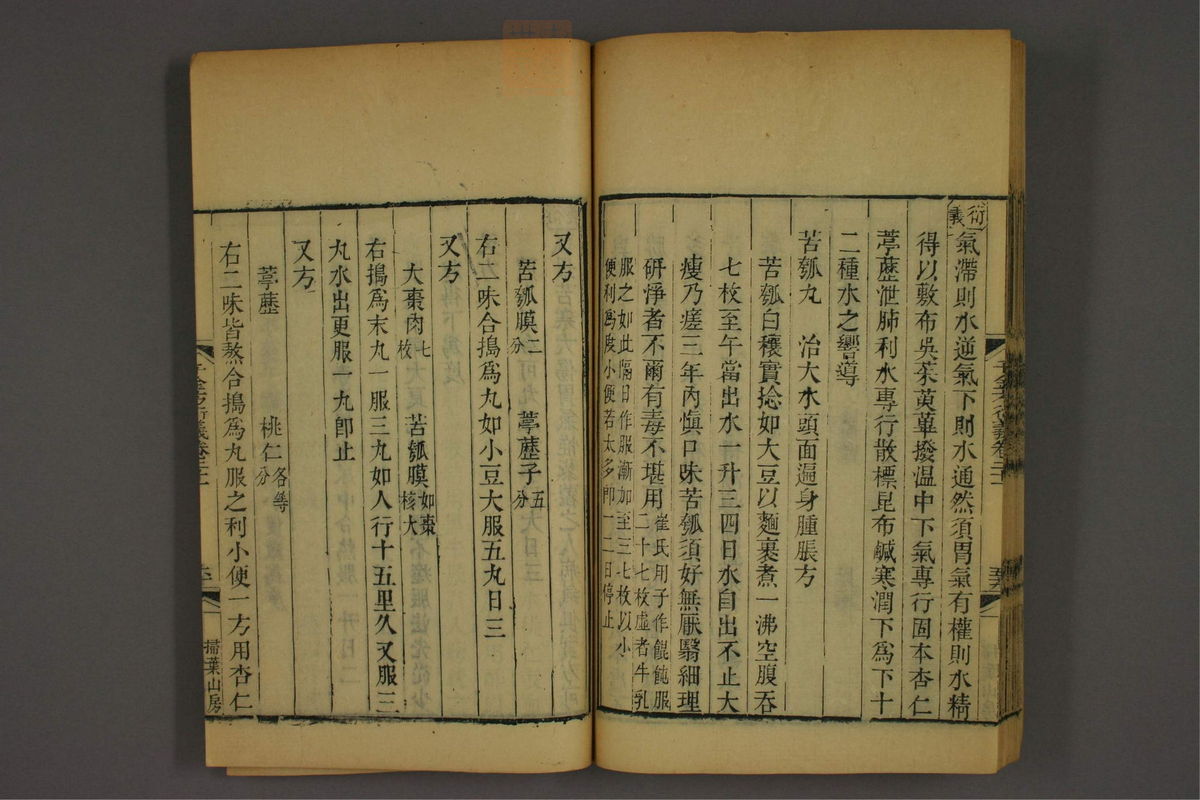 衍義
氣滯則水逆氣下則水通然須胃氣有權則水精
得以敷布吳茱萸蓽撥溫中下氣專行固本杏仁
葶藶泄肺利水專行散標昆布鹹寒潤下為下十
二種水之響導
苦瓠丸　治大水頭面遍身腫脹方
苦瓠白穰實捻如大豆以麵裹煮一沸空腹吞
七枚至午當出水一升三四日水自出不止大
瘦乃瘥三年內慎口味苦瓠須好無厭翳細理
研淨者不爾有毒不堪用崔氏用子作餛飩服二十七枚虛者牛乳
服之如此隔日作服漸加至三七枚以小便利為度小便若太多即一二日停止
千金方衍義卷二十一
又方
苦瓠膜二分　葶藶子五分
右二味合搗為丸如小豆大服五丸日三
又方
大棗肉七枚　苦瓠膜如棗核大
右搗為末丸一服三丸如人行十五里久又服三
丸水出更服一丸卽止
又方
葶藶　桃仁各等分
右二味皆熬合搗為丸服之利小便一方用杏仁
千金方衍義卷二十一
掃葉山房